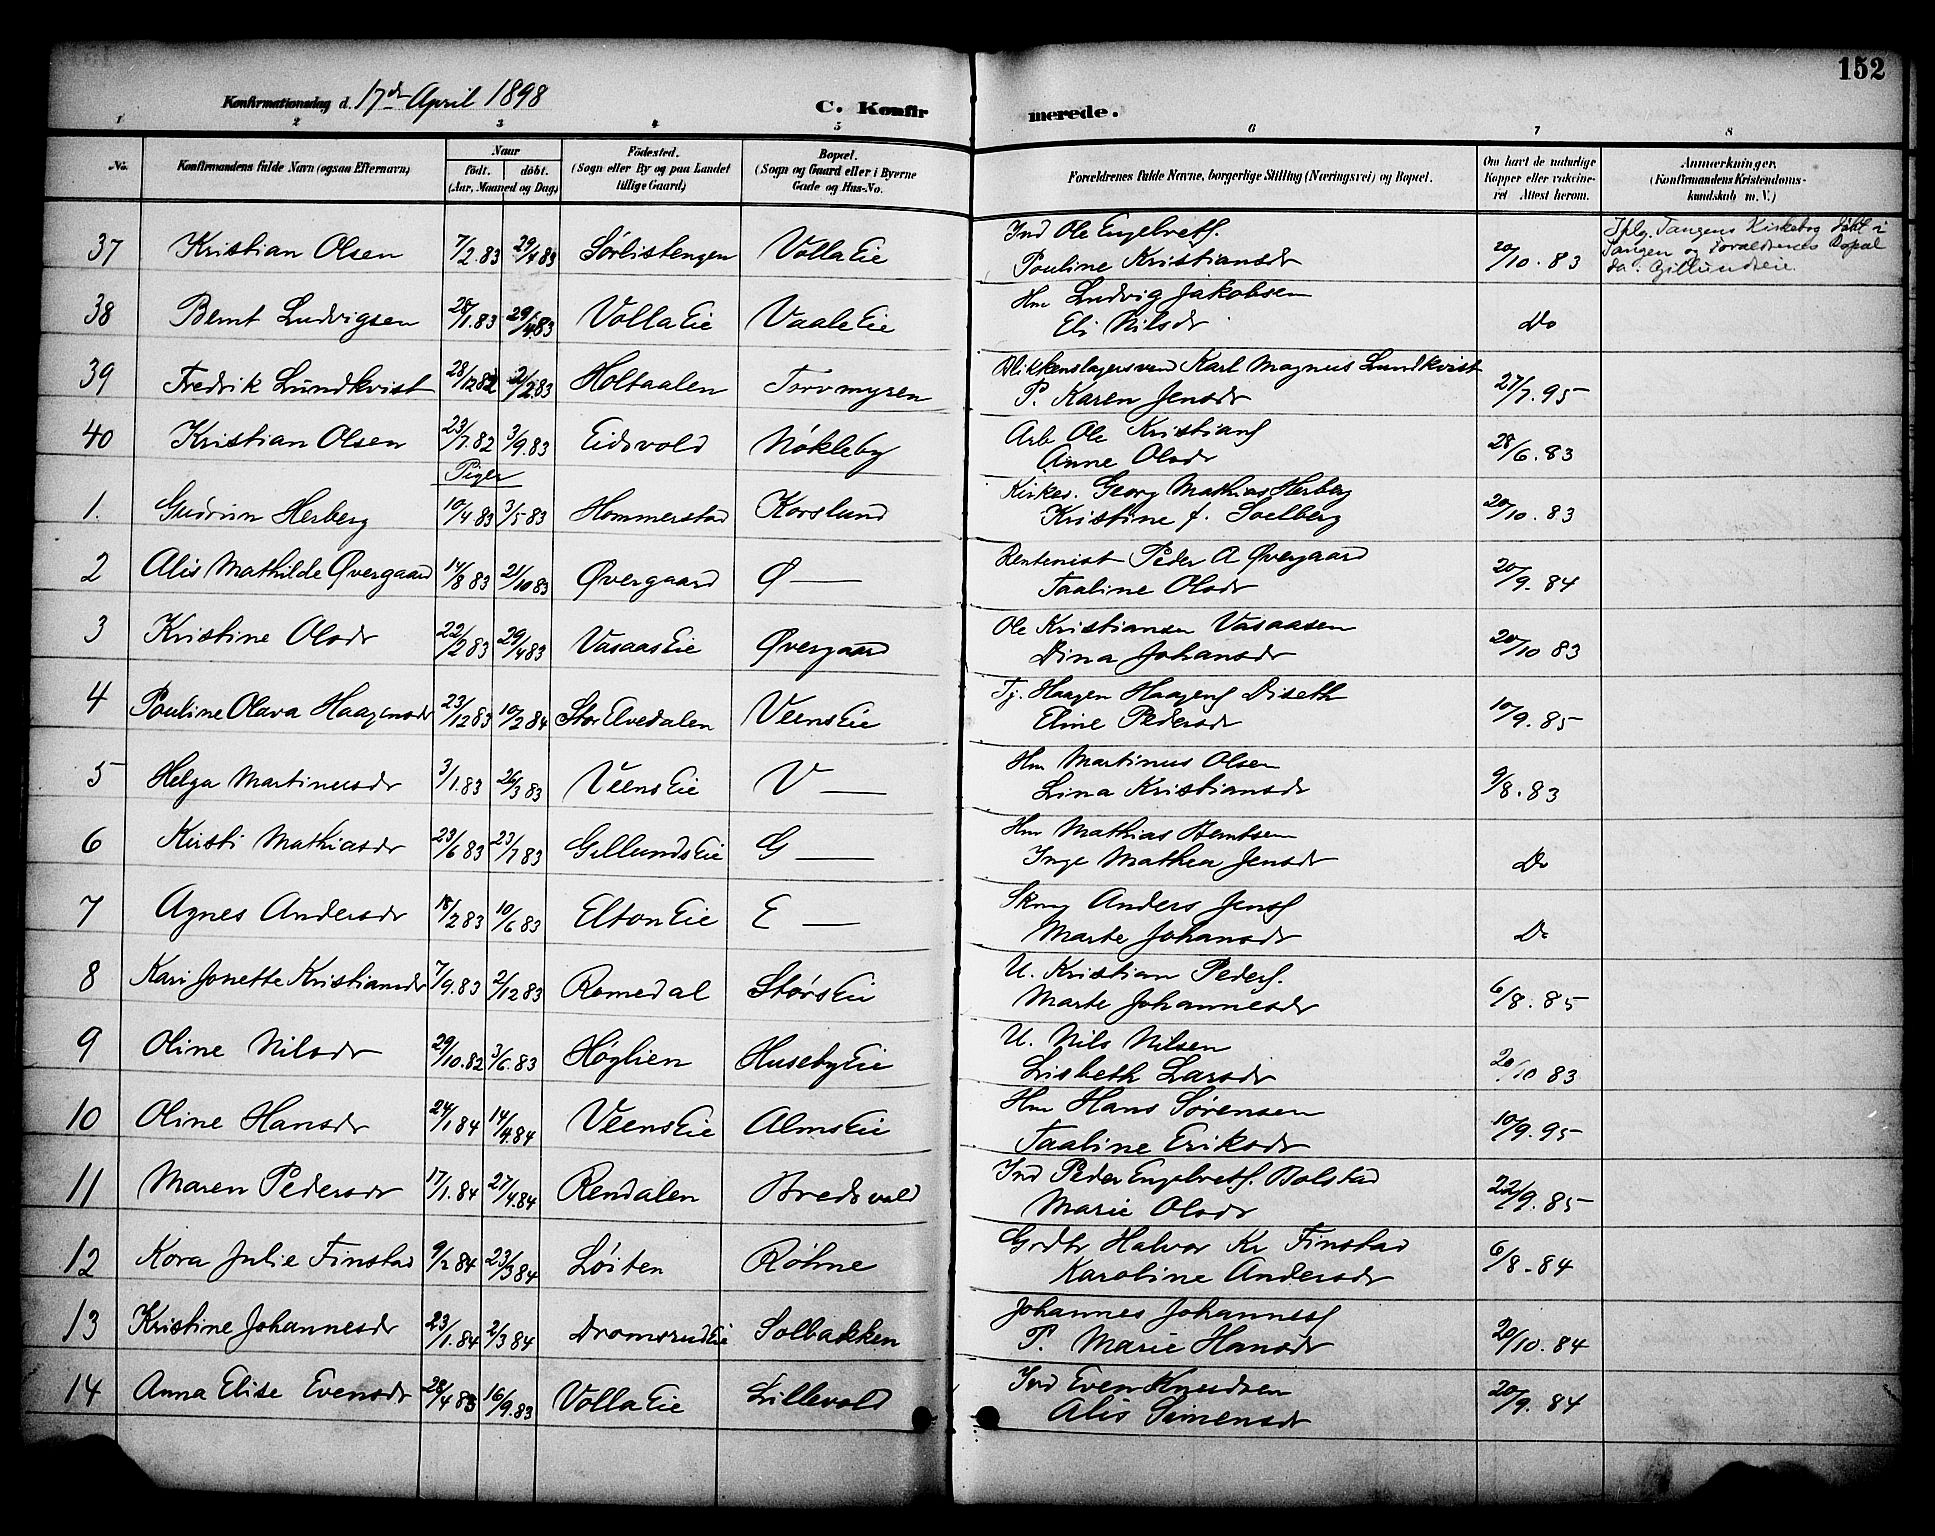 152
Konfirmationsdag d. 17de April 1898
C. Konfir merede.
1 2 3 4 5 6 7 8
No. Konfirmandens fulde Navn (ogsaa Efternavn) Naar født. døbt. (Aar, Maaned og Dag) Fødested. (Sogn eller By og paa Landet tillige Gaard) Bopæl. (Sogn og Gaard eller i Byerne Gade og Hus-No. Forældrenes fulde Navne, borgerlige Stilling (Næringsvei) og Bopæl. Om havt de naturlige Kopper eller vakcineret Attest herom. Anmærkninger. (Konfirmandens Kristendomskundskab m. V.)
37 Kristian Olsen 7/2.83 29/4 83 Sørlistengen Volla Eie Ind Ole Engebrets. Pouline Kristiansdr 20/10.83 Iflg. Tangens Kirkebog født i Tangen og Forældrenes Bopæl da: Gillundseie.
38 Bernt Ludvigsen 28/1.83 29/4.83 Volla Eie Vaale Eie Hm Ludvig Jakobsen Eli Nilsdr Do
39 Fredrik Lundkvist 28/12.82 21/2.83 Holtaalen Torvmyren Blikkenslagersvend Karl Magnus Lundkvist P. Karen Jensdr 27/7.95
40 Kristian Olsen 23/7.82 3/9.83 Eidsvold Nøkleby Arb Ole Kristians Anne Olsdr 28/6.83
Piger
1. Gudrun Herberg 10/4.83 3/5 83 Hommerstad Korslund Kirkes. Georg Mathias Herberg Kristine f. Soelberg 20/10.83
2 Alis Mathilde Øvergaard 14/8 83 21/10 83 Øvergaard Ø — Rentenist Peder A Øvergaard Taaline Olsdr 20/9.84
3 Kristine Olsdr 22/2 83 29/4 83 Vasaas Eie Øvergaard Ole Kristiansen Vasaasen Dina Johansdr 20/10 83
4 Pouline Olava Haagensdr 23/12 83 10/2 84 Stor Elvedalen Veens Eie Tj. Haagen Haagens Diseth Eline Pedersdr 10/9.85
5 Helga Martinusdr 3/1.83 26/3 83 Veens Eie V — Hm Martinus Olsen Lina Kristiansdr 9/8.83
6 Kirsti Mathiasdr 23/6 83 23/7 83 Gillunds Eie G — Hm Mathias Berntsen Inge Mathea Jensdr Do
7 Agnes Andersdr 18/2 83 10/6 83 Elton Eie E — Skrog Anders Jens Marte Johansdr Do
8 Kari Jonette Kristiansdr 7/9.83 2/12 83 Romedal Størs Eie U. Kristian Peders. Marte Johannesdr 6/8.85
9 Oline Nilsdr 29/10.82 3/6.83 Høglien Huseby Eie U. Nils Nilsen Lisbeth Larsdr 20/10 83
10 Oline Hansdr 24/1.84 14/4.84 Veens Eie Alms Eie Hm Hans Sørensen Taaline Eriksdr 10/9.95
11 Maren Pedersdr 17/1.84 27/4.84 Rendalen Bredsvold Ind Peder Engebrets. Bolstad Marie Olsdr 22/9.85
12 Kora Julie Finstad 9/2 84 23/3 84 Løiten Røhne Grdbr Halvor Kr Finstad Karoline Andersdr 6/8-84
13 Kristine Johannesdr 23/1.84 2/3 84 Dromsrud Eie Solbakken Johannes Johanness P. Marie Hansdr 20/10.84
14 Anna Elise Evensdr 28/4 83 16/9.83 Volla Eie Lillevold Ind Even Knudsen Alis Simensdr 20/9.84